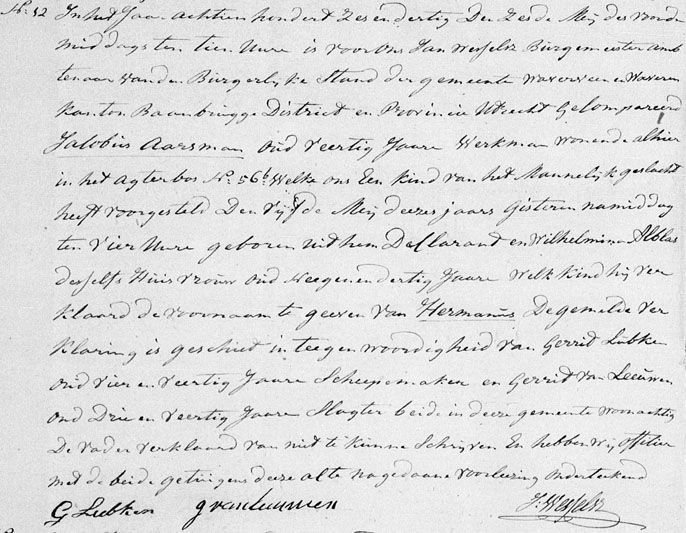 No. 52 In het Jaar achtien hondert Zes en dertig Den Zesde Meij des voorde
middags ten tien Uure is voor ons Jan Wesselsz Burgemeester amb
tenaar van den Burgerlyke Stand der gemeente Waverveen en Waveren
kanton Baambrugge District en Provincie Utrecht Gecompareerd
Jacobus Aarsman oud veertig Jaare Werkman wonende alhier
in het agterbos No. 56b Welke ons Een kind van het Mannelyk geslacht
heeft voorgesteld Den vijfde Meij deezes jaars Gisteren namiddag
ten vier Uure geboren uit hem Declarand en Wilhelmina Alblas
desselfs Huisvrouw oud Neegen en dertig Jaare Welk kind hij ver
klaard de voornaam te geeven van Hermanus De gemelde ver
klaring is geschiet in teegenwoordigheid van Gerrit Lubken
oud vier en veertig Jaare Scheepemaken en Gerrit van Leeuwen
oud Drie en veertig Jaare Slagter beide in deeze gemeente woonachtig
De vader verklaard van niet te kunne Schryven En hebben wy officier
met de beide getuigens deeze akte na gedaane voorlezing onderteekend
G Lubken g van leeuwen J: Wesselsz